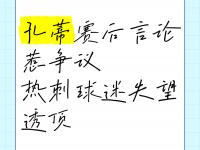 孔蒂赛后言论
惹争议
热刺球迷失望
透顶